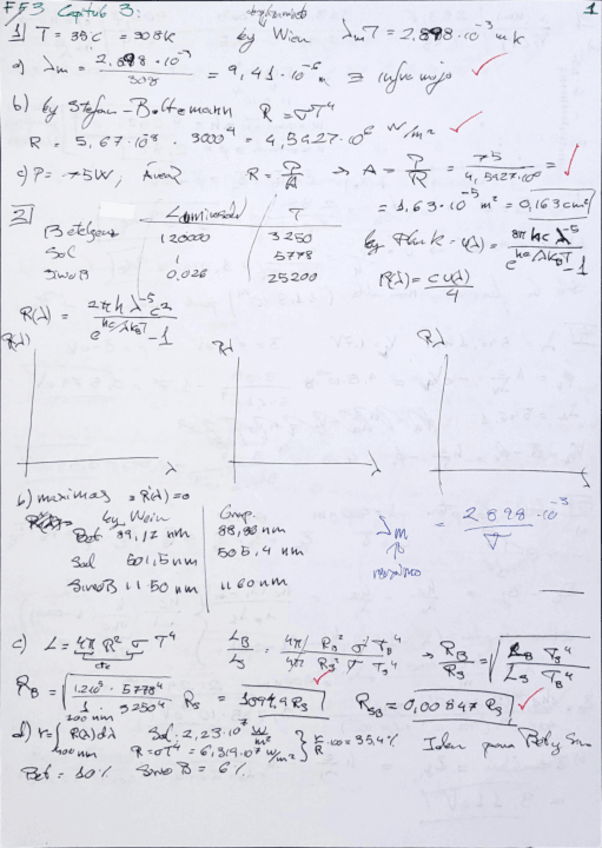 FS3 Capitulo 3: 1
1) T = 35°C = 308K by Wien λmT = 2,898·10⁻³ mK
a) λm = 2,898·10⁻³ / 308 = 9,41·10⁻⁶ m ≡ infrarrojo
b) by Stefan-Boltzmann R = σT⁴
R = 5,67·10⁸ · 3000⁴ = 4,5927·10⁶ W/m²
c) P = 75W, R = P/A → A = P/R = 75 / 4,5927·10⁶ =
= 1,63·10⁻⁵ m² = 0,163 cm²
2) Luminosidad T
Betelgeuse 120000 3250
Sol 1 5778
Sirio B 0,026 25200
by Plank u(λ) = 8πhcλ⁻⁵ / e^(hc/λKBT) - 1
R(λ) = c u(λ) / 4
R(λ) = 2πhλ⁻⁵c² / e^(hc/λKBT) - 1
R(λ) Rλ Rλ
λ λ
b) maximas = R'(λ) = 0
by Wein Grap.
Bet 89,12 nm 88,88 nm
Sol 501,5 nm 505,4 nm
Sirio B 11 50 nm 11 60 nm
λm = 2898·10⁻³ / T
↑
máximo
c) L = 4π R² σ T⁴ LB/LS = 4π RB² σ TB⁴ / 4π RS² σ TS⁴ → RB/RS = √(LB TS⁴ / LS TB⁴)
cte
RB = √(1.2·10⁵ · 5778⁴ / 1 · 3250⁴) RS = 1094,9 RS RSB = 0,00847 RS
d) r = ∫ 400nm 700nm R(λ)dλ Sol: 2,23·10⁷ W/m²
R = σT⁴ = 6,319·10⁷ W/m² } r/R ·100 = 35,4% Idem para Bet y Sirio
Bet = 10% Sirio B = 6%